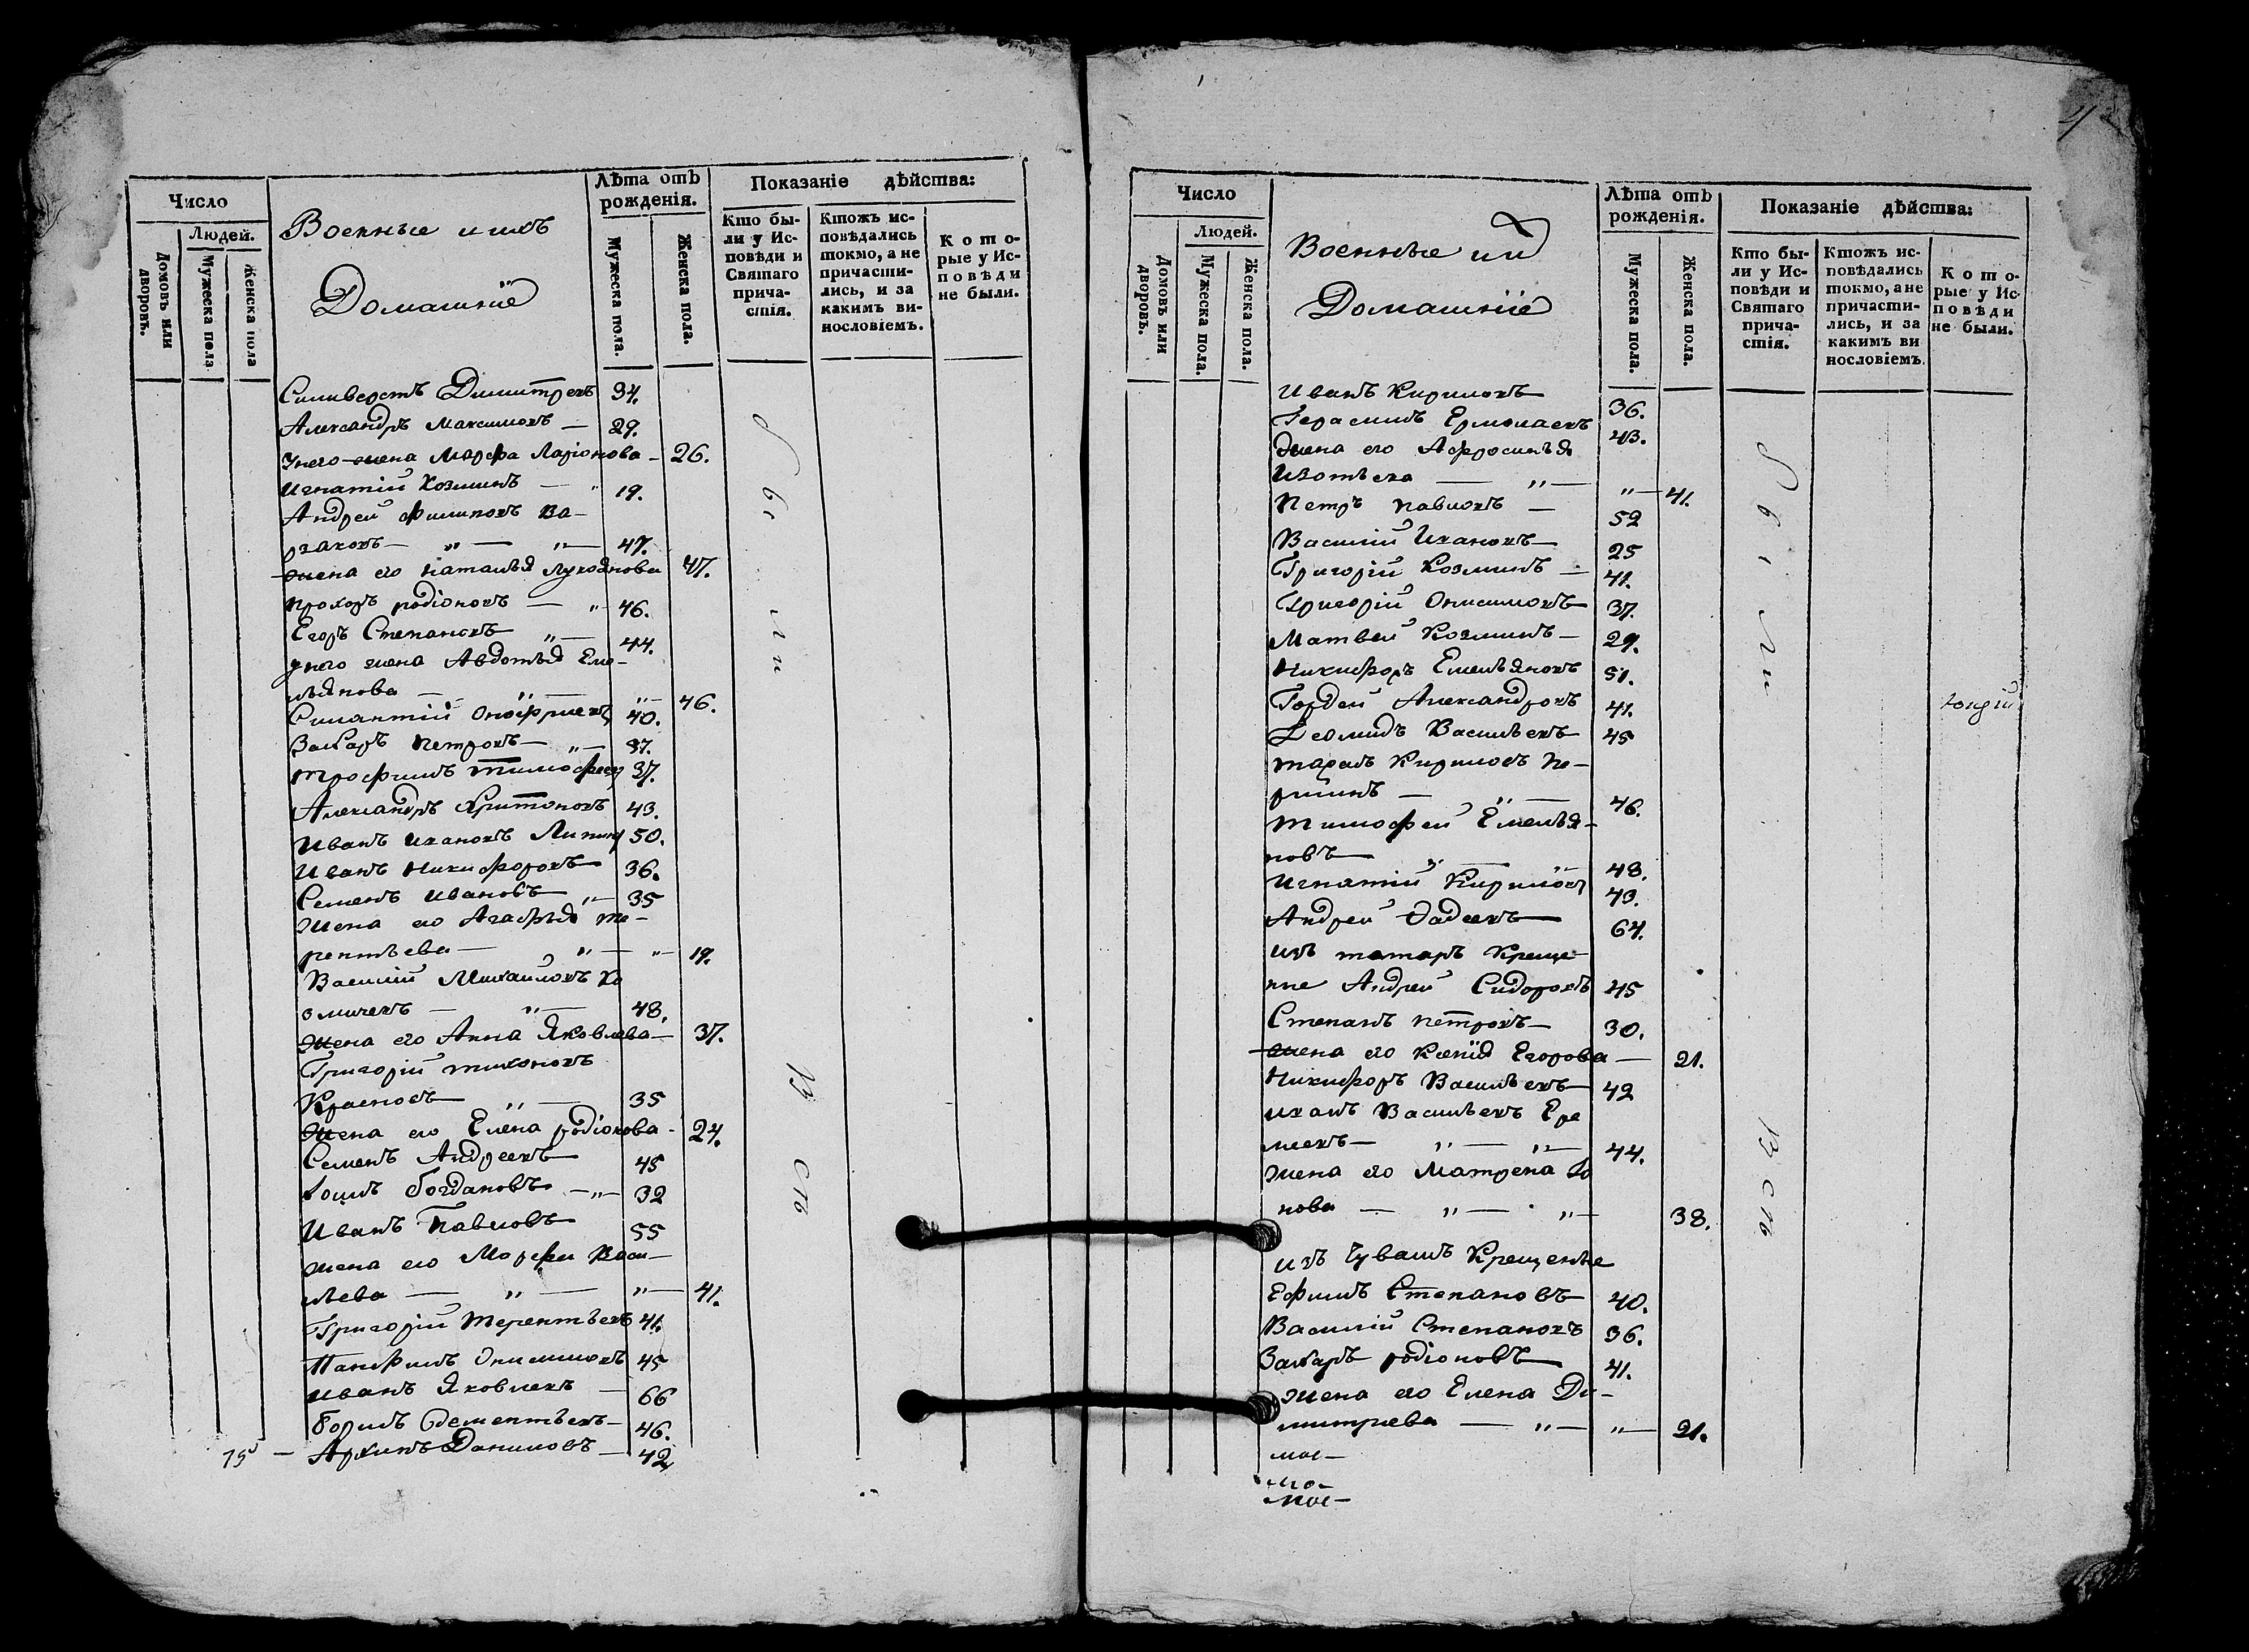 Число
Людей.
Домовъ или дворовъ.
Мужеска пола
Женска пола
Военные и ихъ
Домашніе
Лѣта отъ рожденія.
Мужеска пола.
Женска пола.
Показаніе дѣйства:
Кто бы-
ли у Ис-
повѣди и
Святаго
прича-
стія.
Ктожъ ис-
повѣдались
токмо, а не
причасти-
лись, и за
какимъ ви-
нословіемъ.
Кото-
рые у Ис-
повѣди
не были.
Силиверстъ Димитревъ 34.
Александръ Максимовъ — 29.
Унего жена Марфа Ларіонова — 26.
Игнатій Козминъ — " 19.
Андрей Филиповъ Ка-
заковъ — " — " — 47.
жена его Наталья Лукоянова 47.
Прохоръ родіоновъ — " 46.
Егоръ Степановъ " — 44.
унего жена Авдотья Еме-
льянова — " — " — 46.
Силантій Онофриевъ 40.
Захаръ Петровъ — " — 37.
Трофимъ Тимофеевъ 37.
Александръ Харитоновъ 43.
Иванъ Ивановъ Липин 50.
Иванъ Никифоровъ — 36.
Семенъ Ивановъ " — 35
жена его Агафья те-
рентьева — " — " — 19.
Василій Михаиловъ Ко
змичевъ — " — 48.
жена его Анна Яковлева — 37.
Григорій тихоновъ
Красновъ — " — 35
жена его Елена родіонова — 24.
Семенъ Андреевъ — 45
Фомъ Богдановъ — " — 32
Иванъ Павловъ 55
жена его Марфа Васи-
льева — " — " — 41.
Григорій Терентьевъ 41.
Панфилъ Онисимовъ 45
Иванъ Яковлевъ — 66
Борисъ Дементьевъ — 46.
Архипъ Даниловъ — 42
Бы
ли
въ
Спб
Число
Людей.
Домовъ или дворовъ.
Мужеска пола.
Женска пола.
Военные и их
Домашніе
Лѣта отъ рожденія.
Мужеска пола.
Женска пола.
Показаніе дѣйства:
Кто бы-
ли у Ис-
повѣди и
Святаго
прича-
стія.
Ктожъ ис-
повѣдались
токмо, а не
причасти-
лись, и за
какимъ ви
нословіемъ.
Кото-
рые у Ис-
повѣди
не были.
Иванъ Кириловъ 36.
Герасимъ Ермолаевъ 43.
жена его Афросинья
Изотьева — " — " — 41.
Петръ Павловъ — 52
Василій Ивановъ — 25
Григорій Козминъ — 41.
Григорій Онисимовъ 37.
Матвей Козминъ — 29.
Никифоръ Емельяновъ 51.
Гордей Александровъ 41.
Деомидъ Васильевъ 45
тарасъ Кириловъ Пе-
— " — 46.
Тимофей Емелья-
новъ — " — 48.
Игнатій Кириловъ 43.
Андрей Фадеевъ — 64.
изъ татаръ Креще-
ные Андрей Сидоровъ 45
Степанъ петровъ — 30.
жена его Ксенія Егорова — 21.
Никифоръ Васильевъ — 42
иванъ Васильевъ Ере
меевъ — " — " — 44.
жена его Матрена
нова — " — " — 38.
изъ Чувашъ Крещеные
Ефимъ Степановъ — 40.
Василій Степановъ 36.
Захаръ родіоновъ — 41.
жена его Елена Ди-
митриева — " — " — 21.